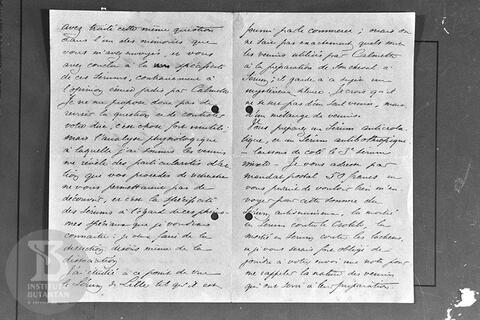 avez traité cette même question
dans l'un des mémoires que
vous m'avez envoyés, et vous
avez conclu à la spécificité
de ces sérums, contrairement à
l'opinion émise jadis par Calmette
Je ne me propose donc pas de
revoir la question et de contrôler
votre dire, c'est chose fort inutile;
mais l'analyse physiologique
à laquelle j'ai soumis les venins
me révèle des particularités d'ac
tion que vos procédés de recherches
ne vous permettaient pas de
découvrir, et c'est la spécificité
des sérums à l'égard de ces phéno
mènes spéciaux que je voudrais
connaître: je veux faire de la
dissection
J'ai étudié à ce point de vue
le sérum de Lille tel qu'il est
fourni par le commerce; mais on
ne sait pas exactement quels sont
les venins utilisés par Calmette
à la préparation de son cheval à
sérum; il garde à ce sujet un
mystérieux silence. Je crois qu'il
ne se sert pas d'un seul venin, mais
d'un mélange de venins.
Vous préparez un Sérum anticrota
lique, et un Sérum antibothropique
— laissons de coté le 3e sérum
mixte. — Je vous adresse par
mandat postal 50 francs en
vous priant de vouloir bien m'en
voyer pour cette somme du
sérum antivenimeux, la moitié
en sérum contre le Crotale, la
moitié en sérum contre les Lachesis,
et je vous serais fort obligé de
joindre à votre envoi une note pour
me rappeler la nature des venins
qui ont servi à leur préparation.
INSTITUTO
BUTANTAN